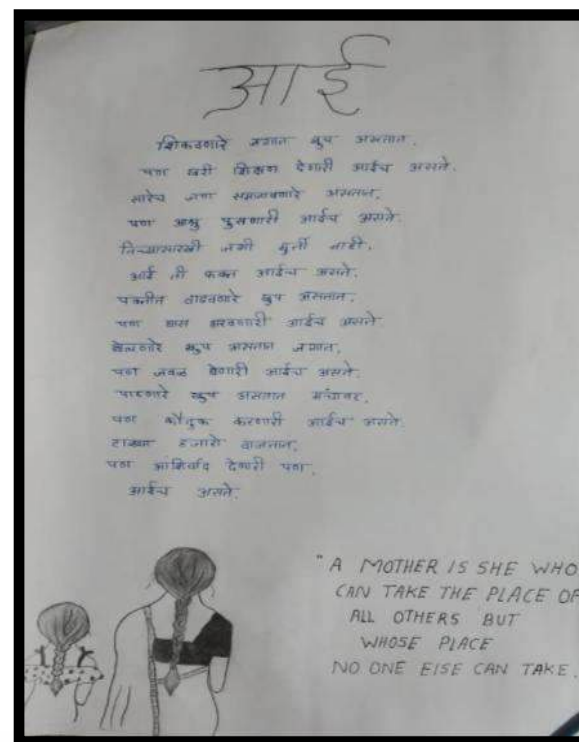 आई
शिकवणारे जगात खुप असतात.
पण खरी शिक्षण देणारी आईच असते.
सारेच जण समजवणारे असतात,
पण आश्रु पुसणारी आईच असते.
तिच्यासारखी जगी मुर्ती नाही.
आई ती फक्त आईच असते.
पक्तीत वाढवणारे खुप असतात,
पण घास भरवणारी आईच असते.
खुप असतात जगात,
पण जवळ घेणारी आईच असते.
पाहणारे खुप असतात मंचावर,
पण कौतुक करणारी आईच असते.
टाळ्या हजारो वाजतात,
पण आशिर्वाद देणारी पण,
आईच असते.
"A MOTHER IS SHE WHO
CAN TAKE THE PLACE OF
ALL OTHERS BUT
WHOSE PLACE
NO ONE ElSE CAN TAKE.